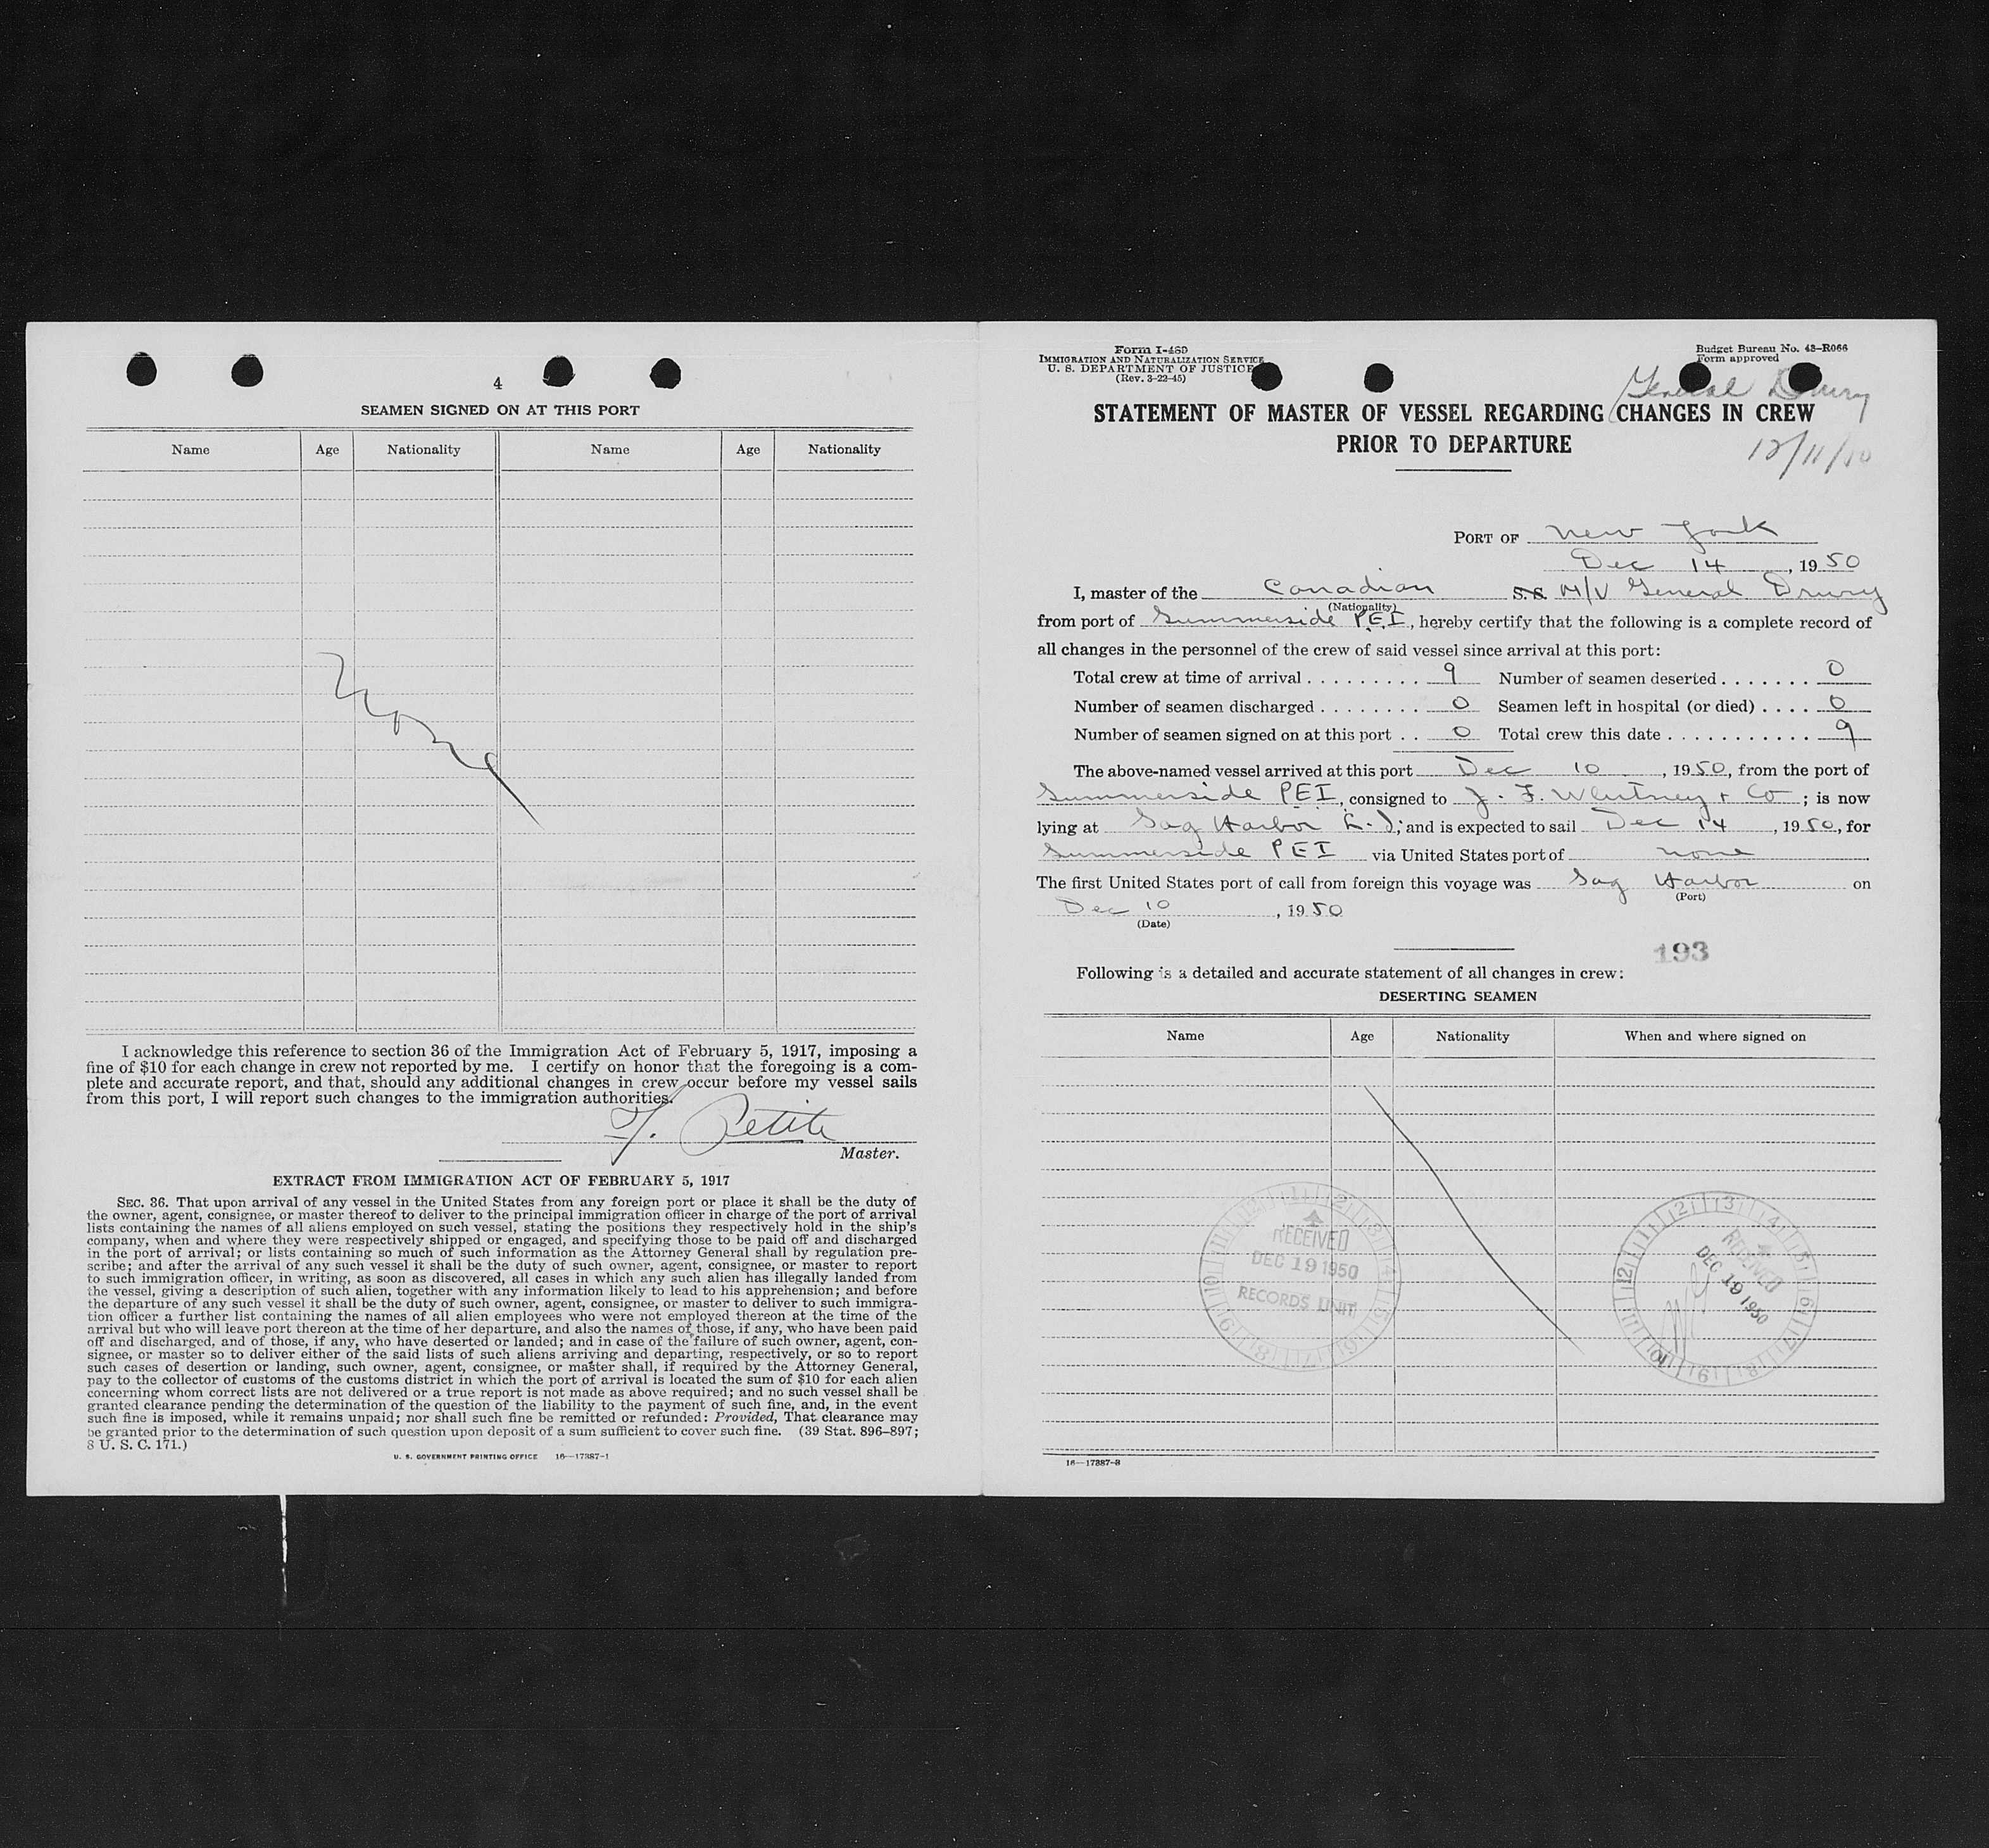 4
SEAMEN SIGNED ON AT THIS PORT
Name Age Nationality Name Age Nationality
None
I acknowledge this reference to section 36 of the Immigration Act of February 5, 1917, imposing a
fine of $10 for each change in crew not reported by me. I certify on honor that the foregoing is a com-
plete and accurate report, and that, should any additional changes in crew occur before my vessel sails
from this port, I will report such changes to the immigration authorities.
F. Petite
Master.
EXTRACT FROM IMMIGRATION ACT OF FEBRUARY 5, 1917
SEC. 36. That upon arrival of any vessel in the United States from any foreign port or place it shall be the duty of
the owner, agent, consignee, or master thereof to deliver to the principal immigration officer in charge of the port of arrival
lists containing the names of all aliens employed on such vessel, stating the positions they respectively hold in the ship's
company, when and where they were respectively shipped or engaged, and specifying those to be paid off and discharged
in the port of arrival; or lists containing so much of such information as the Attorney General shall by regulation pre-
scribe; and after the arrival of any such vessel it shall be the duty of such owner, agent, consignee, or master to report
to such immigration officer, in writing, as soon as discovered, all cases in which any such alien has illegally landed from
the vessel, giving a description of such alien, together with any information likely to lead to his apprehension; and before
the departure of any such vessel it shall be the duty of such owner, agent, consignee, or master to deliver to such immigra-
tion officer a further list containing the names of all alien employees who were not employed thereon at the time of the
arrival but who will leave port thereon at the time of her departure, and also the names of those, if any, who have been paid
off and discharged, and of those, if any, who have deserted or landed; and in case of the failure of such owner, agent, con-
signee, or master so to deliver either of the said lists of such aliens arriving and departing, respectively, or so to report
such cases of desertion or landing, such owner, agent, consignee, or master shall, if required by the Attorney General,
pay to the collector of customs of the customs district in which the port of arrival is located the sum of $10 for each alien
concerning whom correct lists are not delivered or a true report is not made as above required; and no such vessel shall be
granted clearance pending the determination of the question of the liability to the payment of such fine, and, in the event
such fine is imposed, while it remains unpaid; nor shall such fine be remitted or refunded: Provided, That clearance may
be granted prior to the determination of such question upon deposit of a sum sufficient to cover such fine. (39 Stat. 896-897;
8 U. S. C. 171.)
U. S. GOVERNMENT PRINTING OFFICE 16—17387-1
Form I-489
IMMIGRATION AND NATURALIZATION SERVICE
U. S. DEPARTMENT OF JUSTICE
(Rev. 3-22-45)
Budget Bureau No. 43-R066
Form approved
General Drury
STATEMENT OF MASTER OF VESSEL REGARDING CHANGES IN CREW
PRIOR TO DEPARTURE
12/11/50
PORT OF New York
Dec 14, 1950
I, master of the Canadian S.S. M/V General Drury
(Nationality)
from port of Summerside PEI, hereby certify that the following is a complete record of
all changes in the personnel of the crew of said vessel since arrival at this port:
Total crew at time of arrival ......... 9 Number of seamen deserted ....... 0
Number of seamen discharged ........ 0 Seamen left in hospital (or died) .... 0
Number of seamen signed on at this port .. 0 Total crew this date ........... 9
The above-named vessel arrived at this port Dec 10, 1950, from the port of
Summerside PEI, consigned to J. F. Whitney + Co; is now
lying at Sag Harbor L.I; and is expected to sail Dec 14, 1950, for
Summerside PEI via United States port of none
The first United States port of call from foreign this voyage was Sag Harbor on
(Port)
Dec 10, 1950
(Date)
193
Following is a detailed and accurate statement of all changes in crew:
DESERTING SEAMEN
Name Age Nationality When and where signed on
RECEIVED
DEC 19 1950
RECORDS UNIT
RECEIVED
DEC 19 1950
16—17387-3